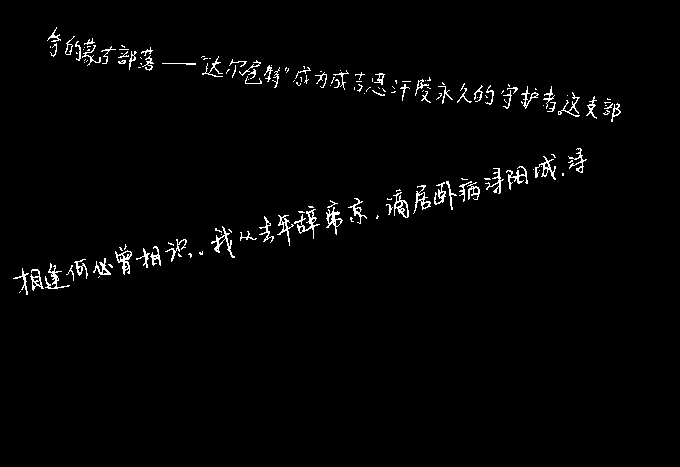 奇的蒙古部落——“达尔扈特”成为成吉思汗陵永久的守护者。这支部
相逢何必曾相识..我从去年辞帝京,谪居卧病浔阳城.浔